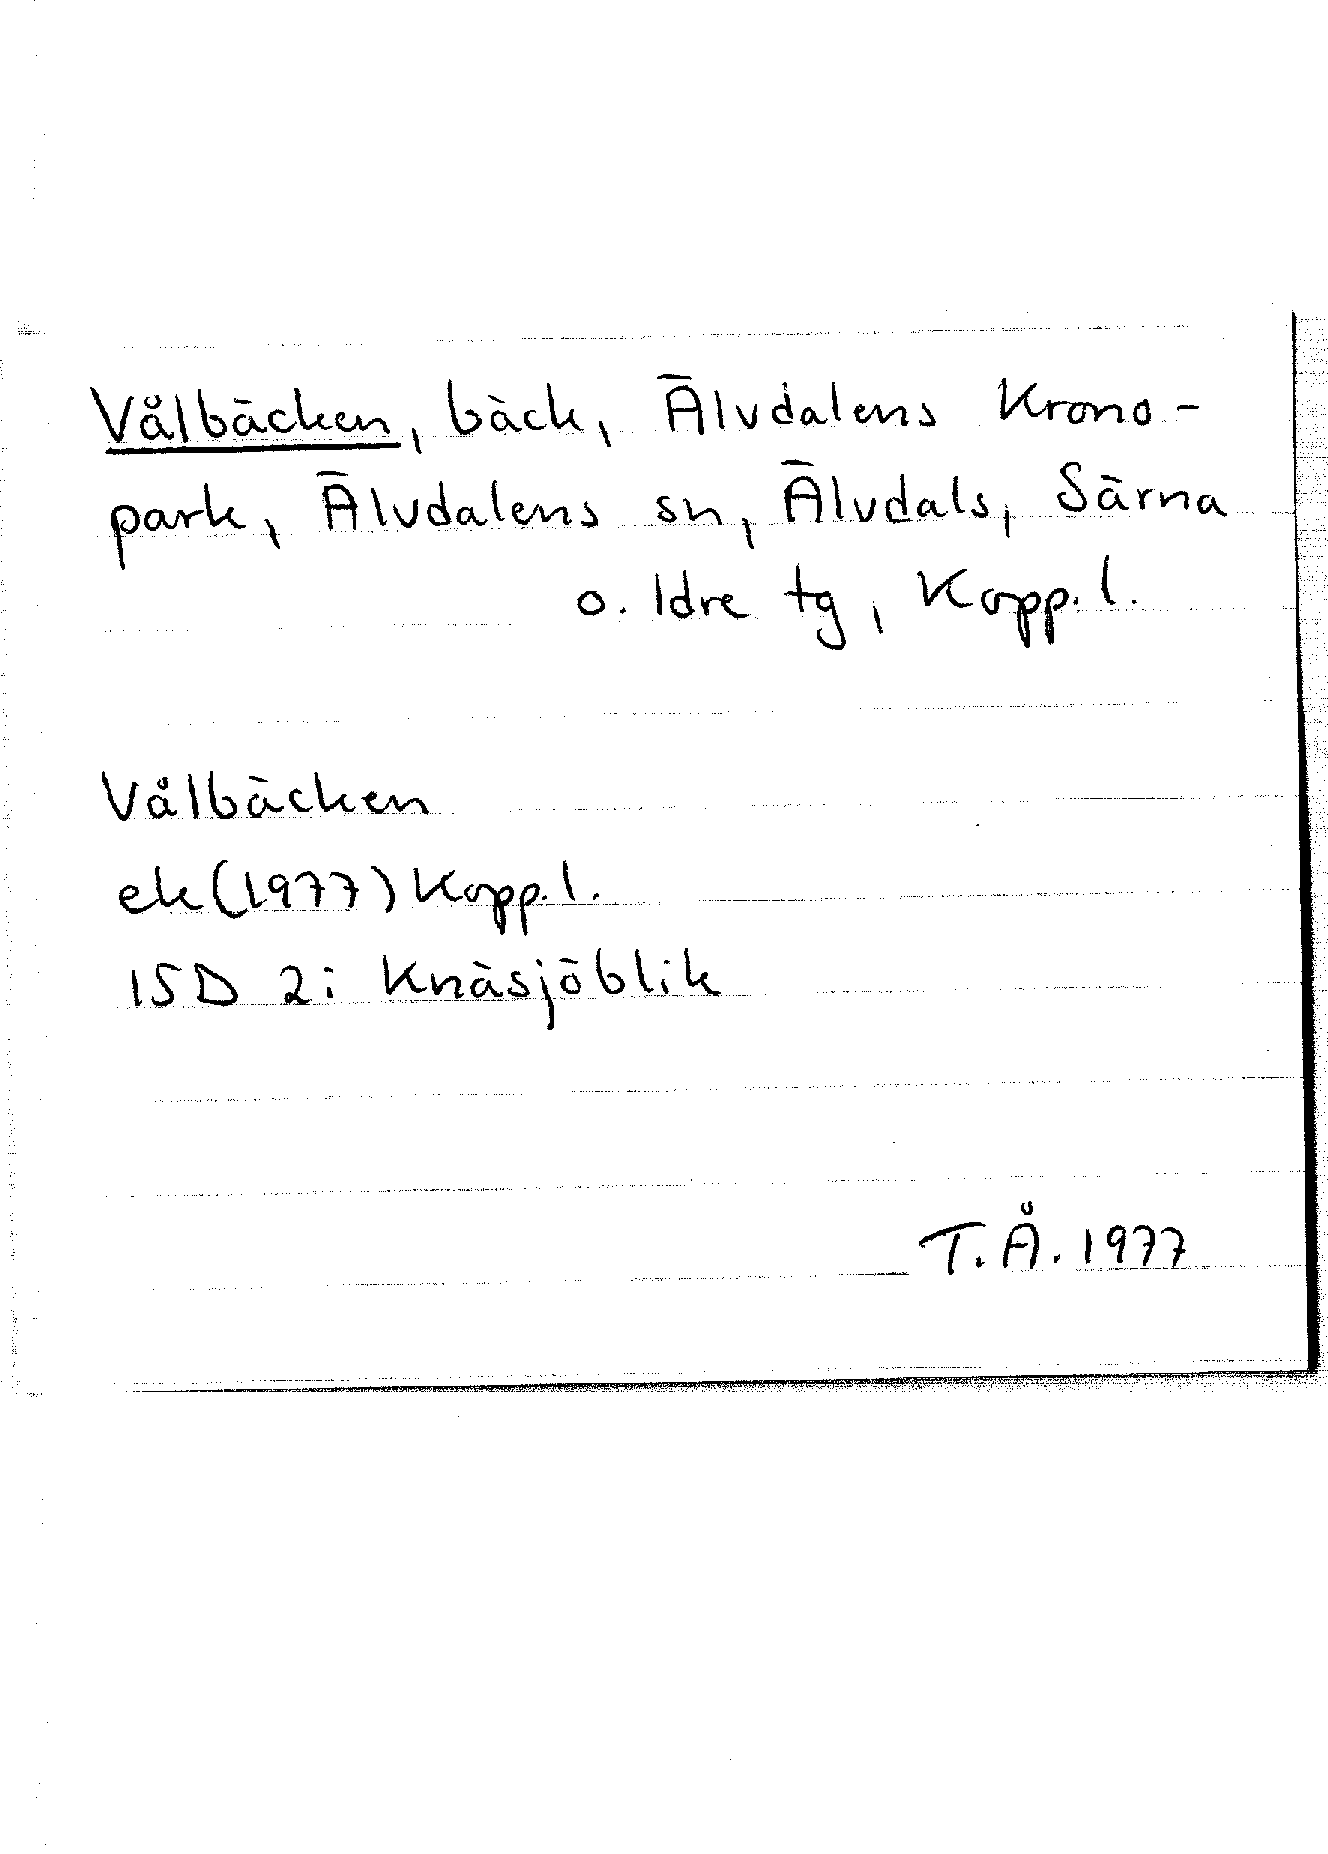 Vålbäcken, bäck, Älvdalens Krono-
park, Älvdalens sn, Älvdals, Särna
o. Idre tg, Kopp. l.
Vålbäcken
ek (1977) Kopp. l.
15D 2i Knäsjöblik
T.Å. 1977